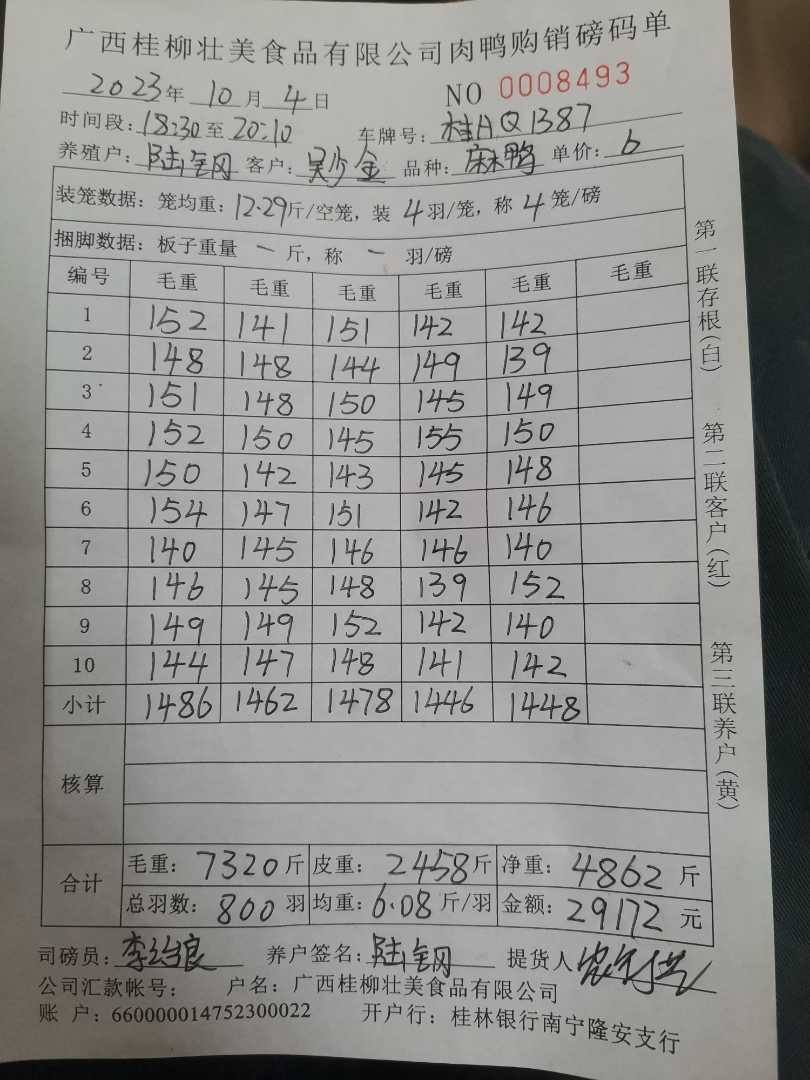 广西桂柳壮美食品有限公司肉鸭购销磅码单
2023年 10月 4日 NO 0008493
时间段:18:30至20:10 车牌号:桂AQ1387
养殖户:陆钢 客户:吴少金 品种:麻鸭 单价:6
装笼数据:笼均重:12.29斤/空笼,装 4羽/笼,称 4笼/磅
捆脚数据:板子重量 一 斤,称 一 羽/磅
编号 毛重 毛重 毛重 毛重 毛重 毛重
1 152 141 151 142 142
2 148 148 144 149 139
3 151 148 150 145 149
4 152 150 145 155 150
5 150 142 143 145 148
6 154 147 151 142 146
7 140 145 146 146 140
8 146 145 148 139 152
9 149 149 152 142 140
10 144 147 148 141 142
小计 1486 1462 1478 1446 1448
核算
合计
毛重:7320斤 皮重:2458斤 净重:4862斤
总羽数:800羽 均重:6.08斤/羽 金额:29172元
司磅员: 养户签名:陆钢 提货人
公司汇款帐号: 户名:广西桂柳壮美食品有限公司
账 户:660000014752300022 开户行:桂林银行南宁隆安支行
第一联存根(白) 第二联客户(红) 第三联养户(黄)